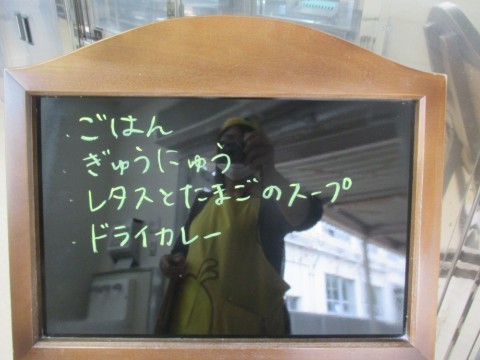 ごはん
ぎゅうにゅう
レタスとたまごのスープ
ドライカレー